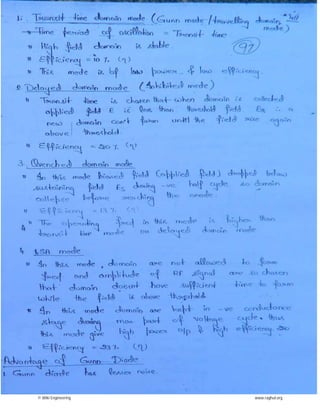 1. Transit time domain mode (Gunn mode / travelling domain mode)
→ Time period of oscillation = Transit time
97
» High field domain is stable.
» Efficiency = 10 % (η)
» This mode is of low power & low efficiency.
2. Delayed domain mode (Inhibited mode)
» Transit time is chosen that when domain is collected
applied field E is less than threshold field Es
new domain can't form until the field rise again
above threshold.
» Efficiency = 20 % (η)
3. Quenched domain mode
» In this mode biased field (applied field) dropped below
sustaining field Es during -ve half cycle so domain
collapse before reaching the anode.
» Efficiency = 13 % (η)
» The operating freq in this mode is higher than
transit time mode or delayed domain mode
4. LSA mode
» In this mode, domain are not allowed to form
freq and amplitude of RF signal are so chosen
that domain doesn't have sufficient time to form
while the field is above threshold.
» In this mode domain are kept in -ve conductance
stage during max part of voltage cycle. thus
this mode give high power o/p & high efficiency. 20
» Efficiency = 23 % (η)
Advantage of Gunn Diode
1. Gunn diode has lesser noise.
© Wiki Engineering
www.raghul.org